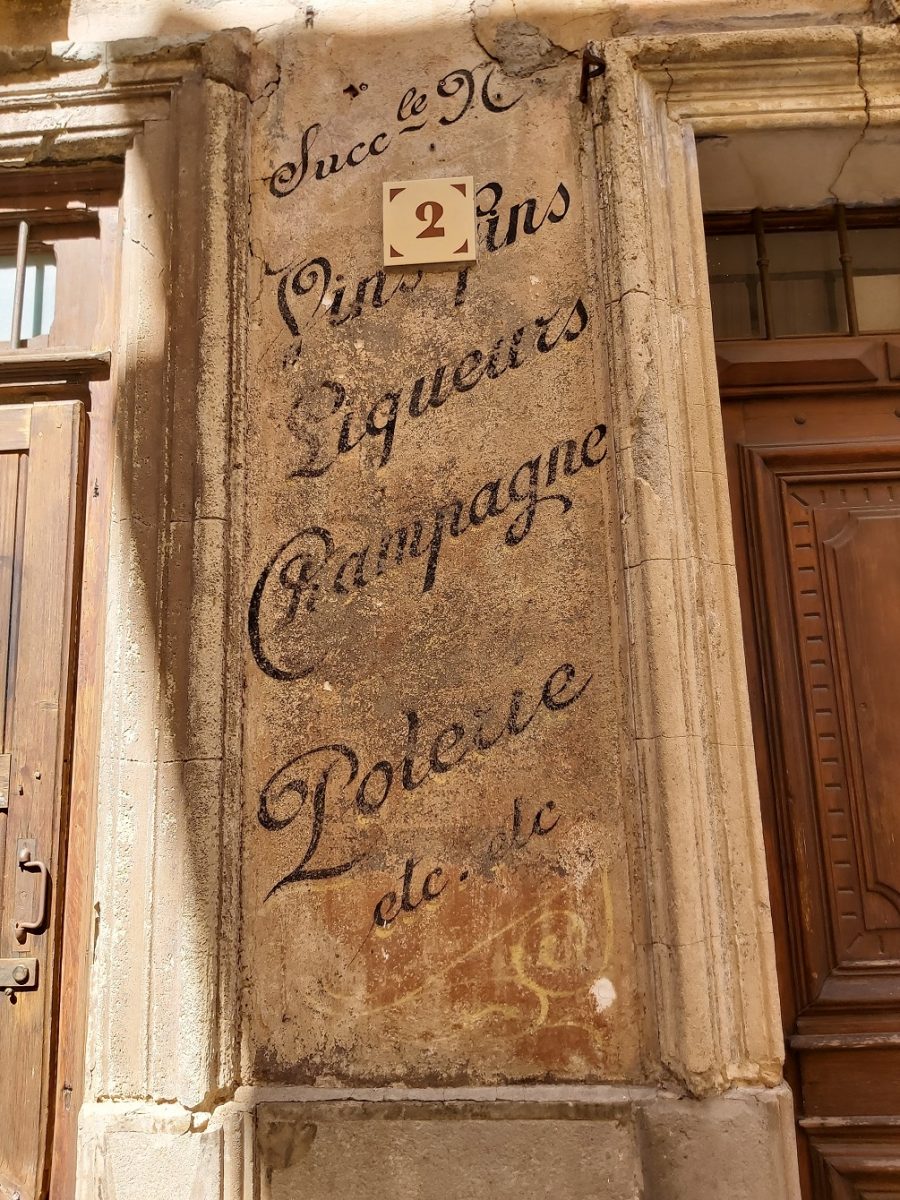 Succ.le N
P
2
Vins fins
Liqueurs
Champagne
Poterie
etc. etc